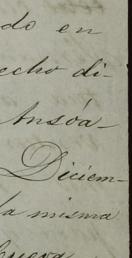 do en
echo di-
Ansóa-
Diciem-
la misma
Cueva